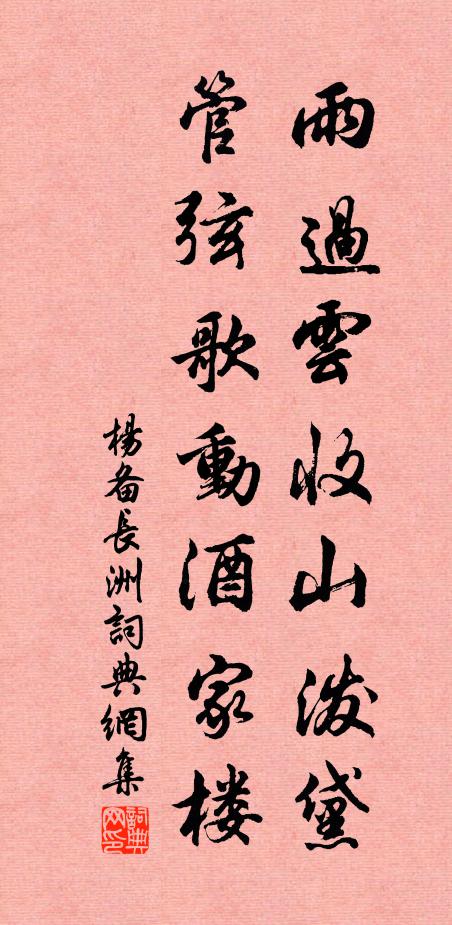 雨過雲收山泼黛
管弦歌動酒家楼
楊备長洲詞典網集
詞典网印